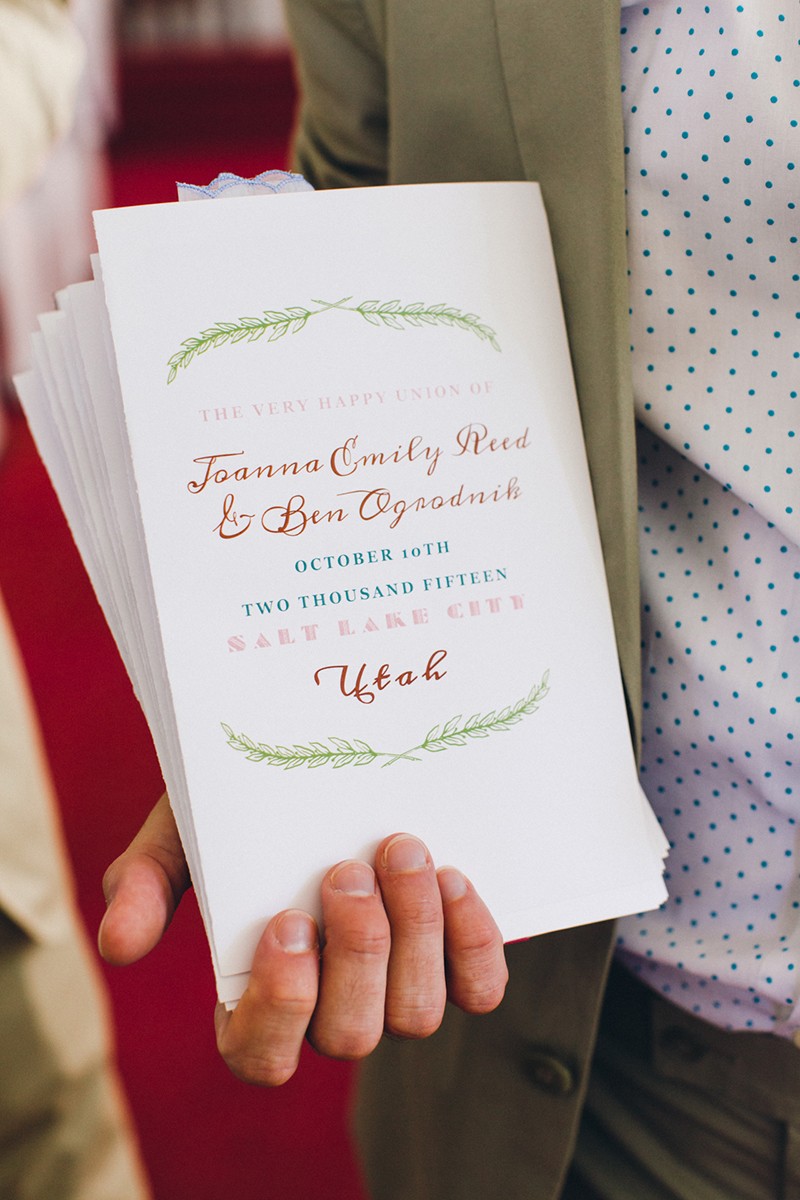 THE VERY HAPPY UNION OF
Joanna Emily Reed
& Ben Ogrodnik
OCTOBER 10TH
TWO THOUSAND FIFTEEN
SALT LAKE CITY
Utah